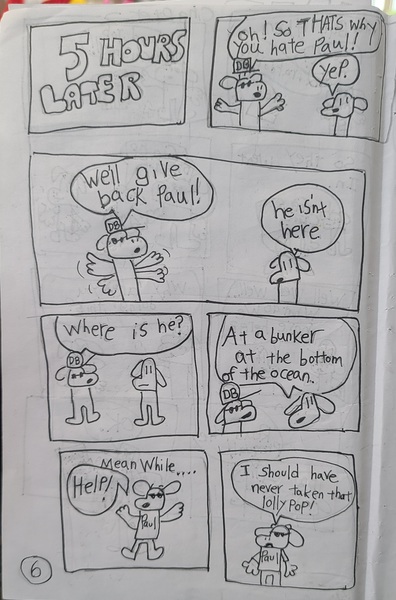 5 HOURS
LATER
Oh! So THATS why
you hate Paul!
DB
Yep.
we'll give
back Paul!
DB
he isn't
here
Where is he?
DB
At a bunker
at the bottom
of the ocean.
DB
Mean While....
Help!
Paul
I should have
never taken that
lolly POP!
Paul
6